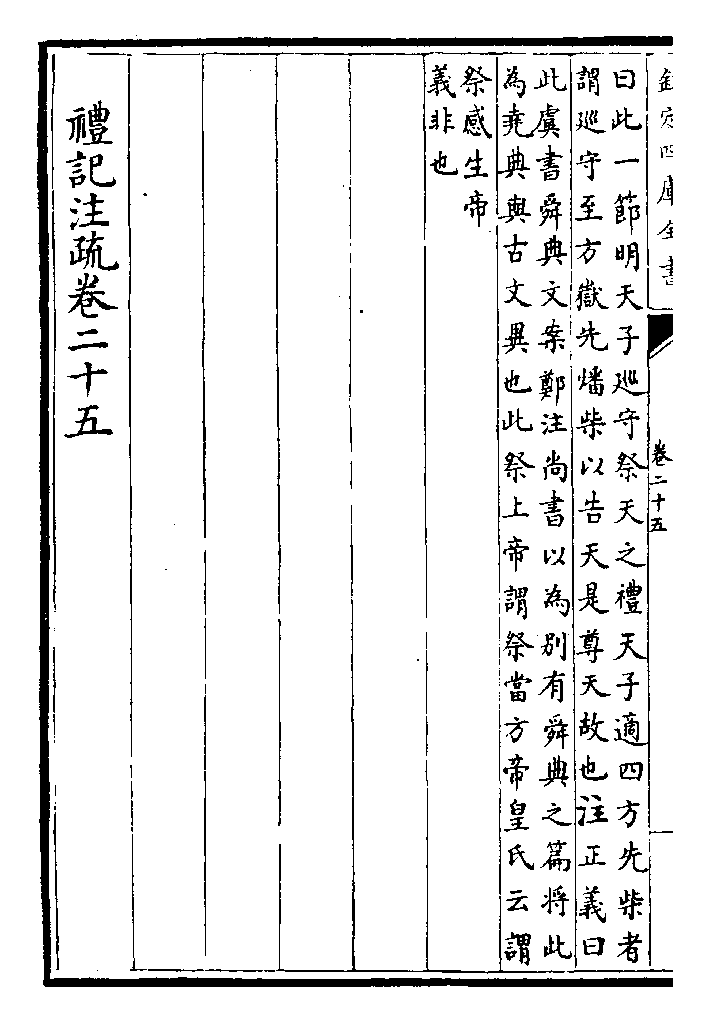 欽定四庫全書
卷二十五
曰此一節明天子巡守祭天之禮天子適四方先柴者
謂巡守至方嶽先燔柴以告天是尊天故也注正義曰
此虞書舜典文案鄭注尚書以為別有舜典之篇將此
為堯典與古文異也此祭上帝謂祭當方帝皇氏云謂
祭感生帝
義非也
禮記注疏卷二十五